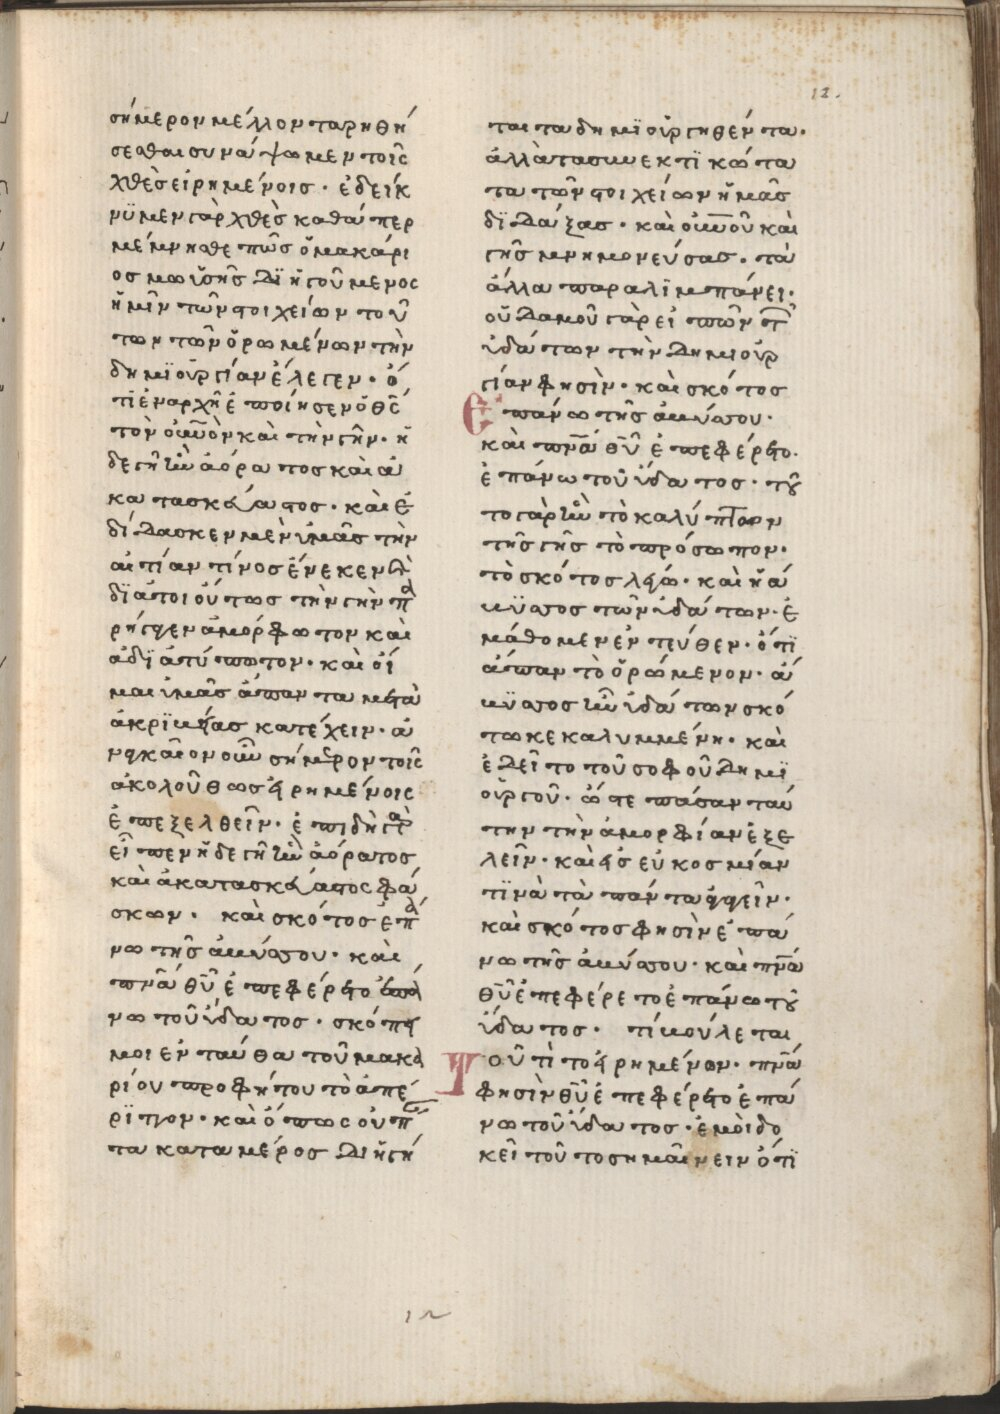 12.
σήμερον μέλλοντα ῥηθή
σεσθαι συνάψωμεν τοῖς
χθὲς εἰρημένοις · ἐδείκ
νϋμεν γὰρ χθὲς καθάπερ
μέμνησθε πῶς ὁ μακάρι
ος μωϋσῆς διηγούμενος
ἡμῖν τῶν στοιχείων τού
των τῶν ὁρωμένων τὴν
δημϊουργίαν ἔλεγεν · ὅ
τϊ ἐν ἀρχῇ ἐποίησεν ὁ θς
τὸν οὐνὸν καὶ τὴν γῆν · ἡ
δὲ γῆ ἦν ἀόρατος καὶ ἀ
κατασκεύαστος · καὶ ἐ
δίδασκεν μὲν ὑμᾶς τὴν
αἰτίαν τίνος ἕνεκεν
δϊάτοι οὕτως τὴν γὴν π
ρήγαγεν ἀμόρφωτον καὶ
ἀδϊατύπωτον · καὶ οἶ
μαι ὑμᾶς ἅπαντα μετὰ
ἀκρϊβείας κατέχειν · ἀ
ναγκαῖον οὖν σήμερον τοῖς
ἀκολούθως εἰρημένοις
ἐπεξελθεῖν · ἐπιδὴ γὰρ
εἶπεν ἡ δὲ γῆ ἦν ἀόρατος
καὶ ἀκατασκεύαστος φά
σκων · καὶ σκότος ἐπά
νω τῆς ἀβύσσου · καὶ
πνᾶ θῦ ἐπεφέρετο ἐπά
νω τοῦ ὕδατος · σκόπει
μοι ἐνταύθα τοῦ μακα
ρίου προφήτου τὸ ἀπέ
ρϊττον · καὶ ὅπως οὐ πάν
τα κατα μέρος διηγεῖ
ται τα δημϊουργηθέντα ·
ἀλλὰ τα συνεκτϊκώτα
τα τῶν στοιχείων ἡμᾶς
δϊδάξας · καὶ οὐνοῦ καὶ
γῆς μνημονεύσας · τὰ
ἄλλα παραλϊμπάνει ·
οὐδαμοῦ γὰρ εἰπὼν τῶν
ὑδάτων τὴν δημιουρ
γίαν φησὶν · καὶ σκότος
ἐπάνω τῆς ἀβύσσου ·
καὶ πνᾶ θῦ ἐπεφέρετο
ἐπάνω τοῦ ὕδατος · τοῦ
το γὰρ ἦν τὸ καλύπτον
τῆς γῆς τὸ πρόσωπον ·
τὸ σκότος λέγω · καὶ ἡ ἄ
βϋσσος τῶν ὑδάτων · ἐ
μάθομεν ἐντεύθεν · ὅτϊ
ἅπαν τὸ ὁρώμενον · ἄ
βϋσσος ἦν ὑδάτων σκό
τω κεκαλυμμένη · καὶ
ἐδεῖτο τοῦ σοφοῦ δημϊ
ουργοῦ · ὥστε πάσαν ταύ
την τὴν ἀμορφίαν ἐξε
λεῖν · καὶ εἰς εὐκοσμίαν
τϊνὰ τὰ πάντα ἀγαγεῖν ·
καὶ σκότος φησὶν ἐπά
νω τῆς ἀβύσσου · καὶ πνᾶ
θῦ ἐπεφέρετο ἐπάνω τοῦ
ὕδατος · τί βούλεται
Τοῦτὶ τὸ εἰρημένον · πνᾶ
φησὶν θῦ ἐπεφέρετο ἐπά
νω τοῦ ὕδατος · ἐμοὶ δο
κεῖ τοῦτο σημαίνειν ὅτϊ